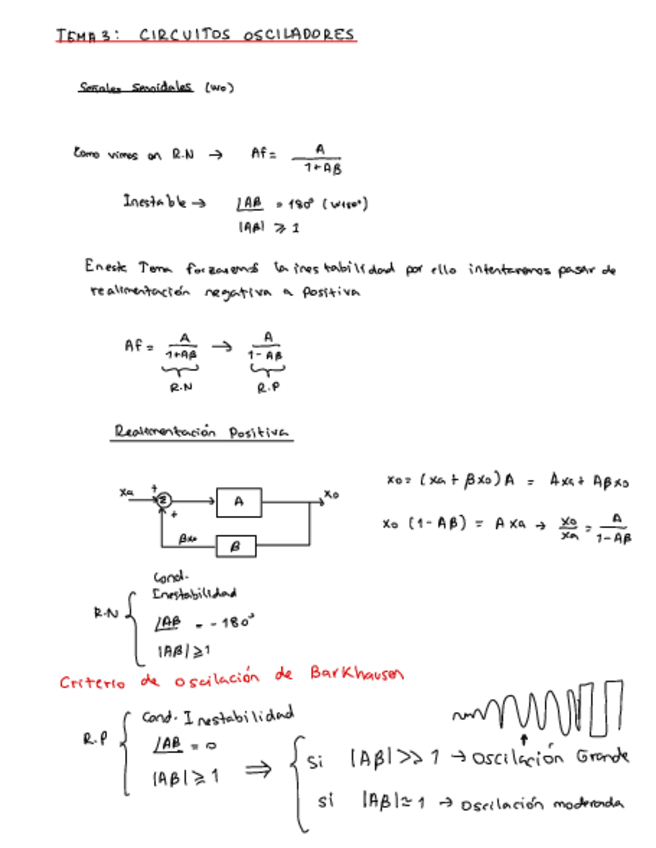 TEMA 3: CIRCUITOS OSCILADORES
Señales Senoidales (wo)
Como vimos en R.N → Af = A / (1+Aβ)
Inestable → ∠Aβ = 180° (w180°)
|Aβ| ⩾ 1
En este Tema forzaremos la inestabilidad por ello intentaremos pasar de
realimentación negativa a Positiva
Af = A / (1+Aβ) → A / (1-Aβ)
R.N R.P
Realimentación Positiva
xo = (xa + βxo)A = Axa + Aβxo
xo (1-Aβ) = A xa → xo/xa = A / (1-Aβ)
xa + Σ + A xo
βxo β
R.N { Cond. Inestabilidad
∠Aβ = -180°
|Aβ| ⩾ 1
Criterio de oscilación de Barkhausen
R.P { Cond. Inestabilidad
∠Aβ = 0
|Aβ| ⩾ 1 ⇒
Si |Aβ| >> 1 → Oscilación Grande
si |Aβ| ≃ 1 → Oscilación moderada